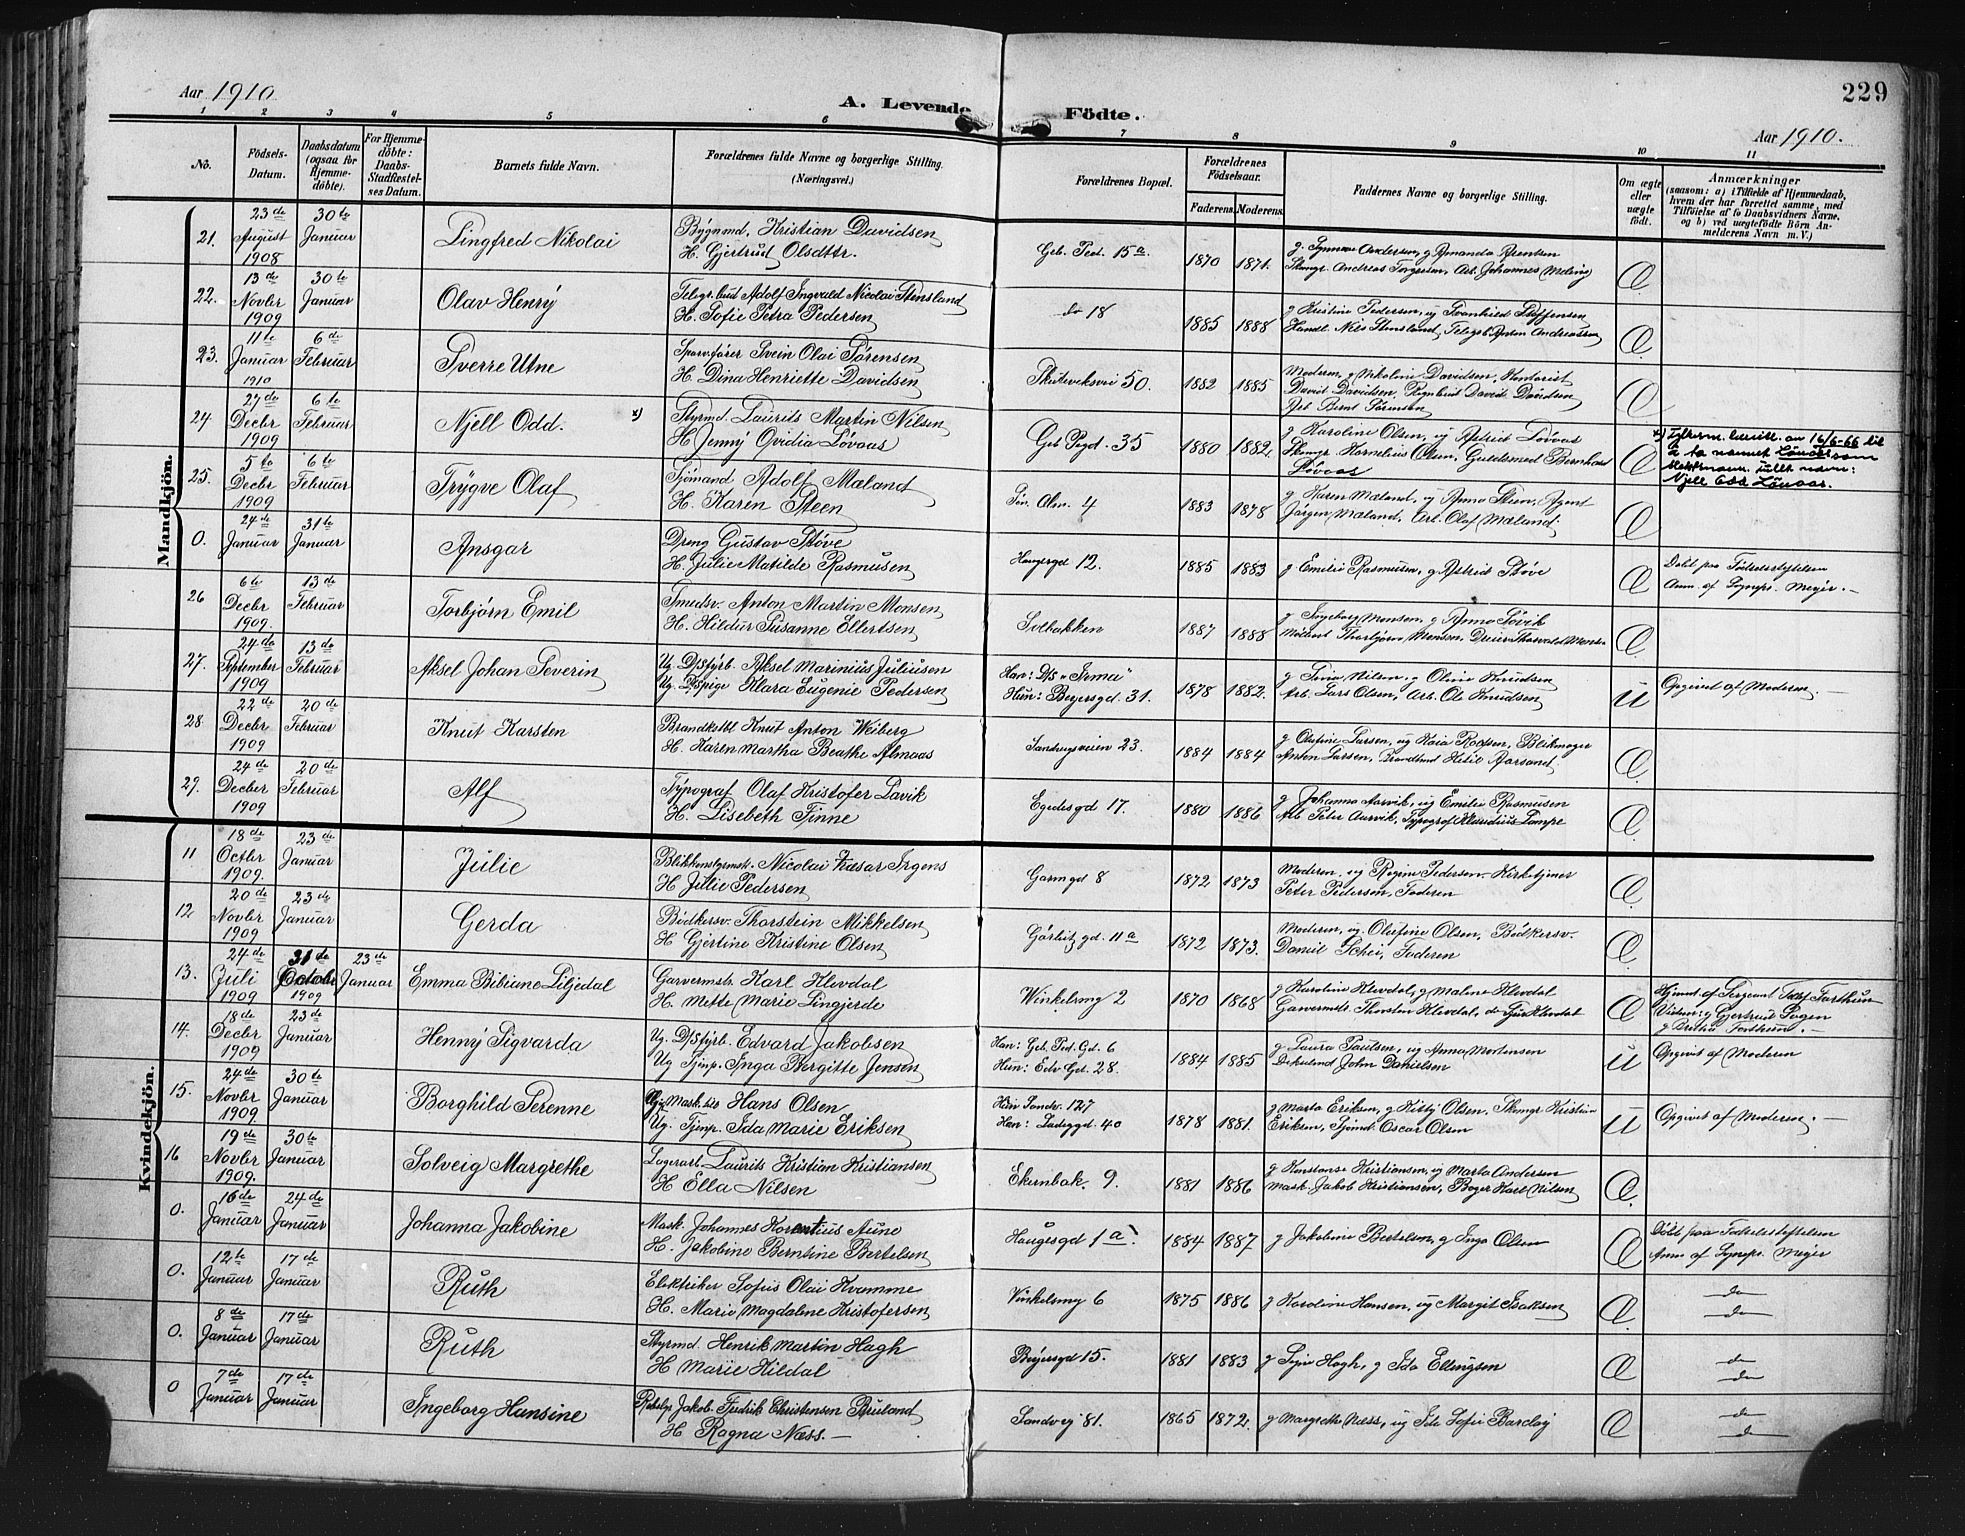 229
Aar 1910
A. Levende Födte.
Aar 1910.
1 2 3 4 5 6 7 8 9 10 11
No.
Födsels-Datum.
Daabsdatum (ogsaa for Hjemmedöbte).
For Hjemmedöbte: Daabs-Stadfæstelses Datum.
Barnets fulde Navn.
Forældrenes fulde Navne og borgerlige Stilling. (Næringsvei.)
Forældrenes Bopæl.
Forældrenes Födselsaar.
Faderens. Moderens.
Faddernes Navne og borgerlige Stilling.
Om ægte eller uægte födt.
Anmærkninger
(saasom: a) i Tilfælde af Hjemmedaab, hvem der har forrettet samme, med Tilföielse af to Daabsvidners Navne, og b) ved uægtefödte Börn Anmelderens Navn m. V.)
Mandkjön.
21. 23de August 1908 30te Januar Lingfred Nikolai
Bygnmd. Kristian Davidsen
H. Gjertrud Olsdttr.
Geb. Ped. 15a. 1870 1871.
Skmgr. Andreas Ingersen, Arb. Johannes Meling
Æ
22. 13de Novbr 1909 30te Januar Olav Henry
Telegr.bud Adolf Ingvald Nicolai Stensland
H. Sofie Petra Pedersen
do 18 1885 1888
g Kristine Pedersen, ug Svanhild Steffensen
Handl. Nils Stensland, Telegb. Anton Andreassen
Æ
23. 11te Januar 1910 6te Februar Sverre Utne
Sporvfører Svein Olai Sørensen
H. Dina Henriette Davidsen
Skuteviksvei 50. 1882 1885
Moderen, g Nikoline Davidsen, Kontorist
David Davidsen, Rignbud David Davidsen
Arb Bernt Sørensen
Æ
24 27de Decbr 1909 6te Februar Njell Odd. x)
Styrmd. Laurits Martin Nilsen
H Jenny Ovidia Løvaas
Geb Pegd. 35 1880 1882.
g Karoline Olsen, ug Astrid Løvaas
Skmgr. Kornelius Olsen, Guldsmed Bernhard
Løvaas
Æ
av 16/6-66 til
å ta navnet Lønaas som
Njell Odd Lønaas.
25. 5te Decbr 1909 6te Februar Trygve Olaf
Sjömand Adolf Maland
H. Karen Steen
Søn. Alm. 4 1883 1878
g Karen Maland, ug Anna Steen, Agent
Jørgen Maland, Arb. Olaf Maland.
Æ
0. 24de Januar 31te Januar Ansgar
Dreng Gustav Støve
H. Julie Matilde Rasmusen
Haugesgd 12. 1885 1883
g Emilie Rasmusen, g Astrid Støve
Æ
Døbt paa Födselsstiftelsen
Anm. af Sognepr. Meyer.
26 6te Decbr 1909. 13de Februar Torbjørn Emil
Smedsv. Anton Martin Monsen
H. Hildur Susanne Ellertsen
Solbakken 1887 1888
g Ingeborg Monsen, g Anna Søvik
Thorbjørn Monsen, Dreier Thorvald Monsen
Æ
27. 24de September 1909 13de Februar Aksel Johan Severin
Ug. D/Sfyrb. Aksel Marinius Juliusen
Ug. D/Spige Klara Eugenie Pedersen
Han: D/S "Irma"
Hun: Beyersgd. 31. 1878 1882.
g Sina Nilsen, g Olivie Knudsen
Arb. Lars Olsen, Arb. Ole Knudsen
U
Opgivet af Moderen.
28 22de Decbr 1909 20de Februar Knut Karsten
Brandkstbl Knut Anton Weiberg
H. Karen Martha Beathe Almaas
Sandvigsveien 23. 1884 1884
g Olufine Larsen, ug Kaia Rodsen, Blikmager
Anton Larsen, Brandkund Hetil Aarsand
Æ
29. 24de Decber 1909 20de Februar Alf
Typograf Olaf Kristofer Lavik
H. Lisebeth Tinne
Egedesgd 17. 1880 1886
g Johanna Aarvik, ug Emilie Rasmusen
Arb Peter Aarvik, Typograf Klaudius Lampe
Æ
Kvindekjön.
11 18de Octbr 1909. 23de Januar Julie
Blikkenslgrmstr. Nicolai Kæsar Irgens
H Julie Pedersen
Garmgd 8 1872 1873
Moderen, ug Regine Pedersen, Kirketjener
Peter Pedersen, Faderen
Æ
12 20de Novbr 1909 23de Januar Gerda
Bødkersv. Thorstein Mikkelsen
H Gjertine Kristine Olsen
Gørbitz gd. 11a 1872 1873.
Moderen, ug. Olufine Olsen, Bødkersv.
Daniel Schei, Faderen
Æ
13. 24de Juli 1909 31de October 1909 23de Januar Emma Bibiane Liljedal
Garvermstr. Karl Klevdal
H. Mette Marie Lingjerde
Winkelsmg 2 1870 1868
g Karoline Klevdal, g Malene Klevdal
Garvermstr. Thorsten Klevdal, do Klevdal
Æ
Hjemd. af Sergeant Forthun
14. 18de Decbr 1909 23de Januar Henny Sigvarda
Ug. D/Sfyrb. Edvard Jakobsen
Ug Tjnp. Inga Bergitte Jensen
Han: Geb. Ped. Gd. 6
Hun: Edv Gd. 28. 1884 1885
g Laura Paulsen, ug Anna Mortensen
John Danielsen
U
Opgivet af Moderen
15. 24de Novbr 1909. 30te Januar Borghild Serenne
Hans Olsen
Ug. Tjnp. Ida Marie Eriksen
Hun Sandv. 127
Han: Ladeggd. 40 1878 1881.
g Marta Eriksen, g Kitty Olsen, Skmgr Kristian
Eriksen, Sjömd. Oscar Olsen
U
Opgivet af Moderen.
16 19de Novbr 1909. 30te Januar Solveig Margrethe
Lagerarb. Laurits Kristian Kristiansen
H Ella Nilsen
Ekernbak. 9. 1881 1886
g Konstanse Kristiansen, ug Marta Andersen
Mask. Jakob Kristiansen, Bager Karl Nilsen
Æ
0. 16de Januar 24de Januar Johanna Jakobine
Mask. Johannes Aune
H. Jakobine Berntine Bertelsen
Haugesgd 1a. 1884 1887
g Jakobine Bertelsen, g Inga Olsen
Æ
Døbt paa Födselsstiftelsen
Anm af Sognepr. Meyer
0. 12te Januar 17de Januar Ruth
Elektriker Sofus Olai Kvamme
H. Marie Magdalene Kristofersen
Winkelsmg 6 1875 1886
g Karoline Hansen, ug Margit Isaksen
Æ
do
do
0. 8de Januar 17de Januar Ruth
Styrmd. Henrik Martin Hagh
H Marie Hildal
Beyersgd 15. 1881 1883
g Signe Hagh, g Ida Ellingsen
Æ
do
do
0 7de Januar 17de Januar Ingeborg Hansine
Jakob Fredrik Christensen Bruland
H Ragna Næss.
Sandvg 81. 1865 1872.
g Margrethe Næss, ug Ida Sofie Barclay
Æ
do
do